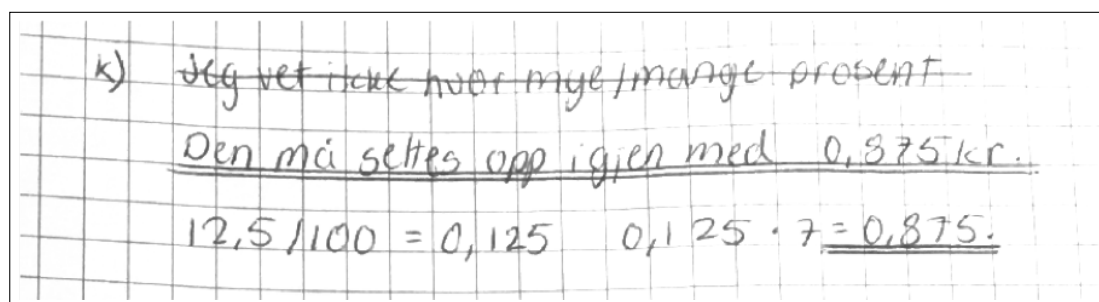 k) Jeg vet ikke hvor mye/mange prosent
Den må settes opp igjen med 0,875 kr.
12,5/100 = 0,125 0,125 · 7 = 0,875.